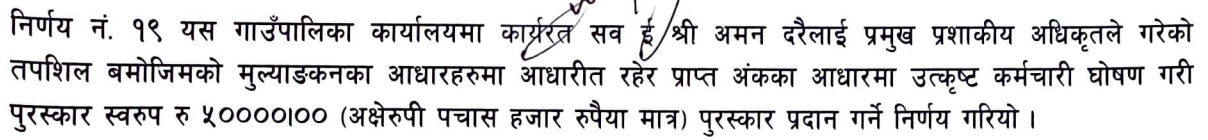 निर्णय नं. १९ यस गाउँपालिका कार्यालयमा कार्यरत सव ई श्री अमन दरैलाई प्रमुख प्रशाकीय अधिकृतले गरेको
तपशिल बमोजिमको मुल्याङकनका आधारहरुमा आधारीत रहेर प्राप्त अंकका आधारमा उत्कृष्ट कर्मचारी घोषण गरी
पुरस्कार स्वरुप रु ५००००।०० (अक्षेरुपी पचास हजार रुपैया मात्र) पुरस्कार प्रदान गर्ने निर्णय गरियो ।